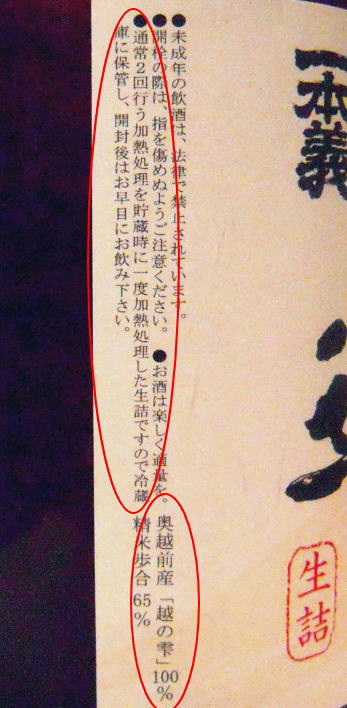 一本義
生詰
●未成年の飲酒は、法律で禁止されています。
●開栓の際は、指を傷めぬようご注意ください。 ●お酒は楽しく適量を。
●通常2回行う加熱処理を貯蔵時に一度加熱処理した生詰ですので冷蔵
庫に保管し、開封後はお早目にお飲み下さい。
奥越前産「越の雫」100%
精米歩合65%